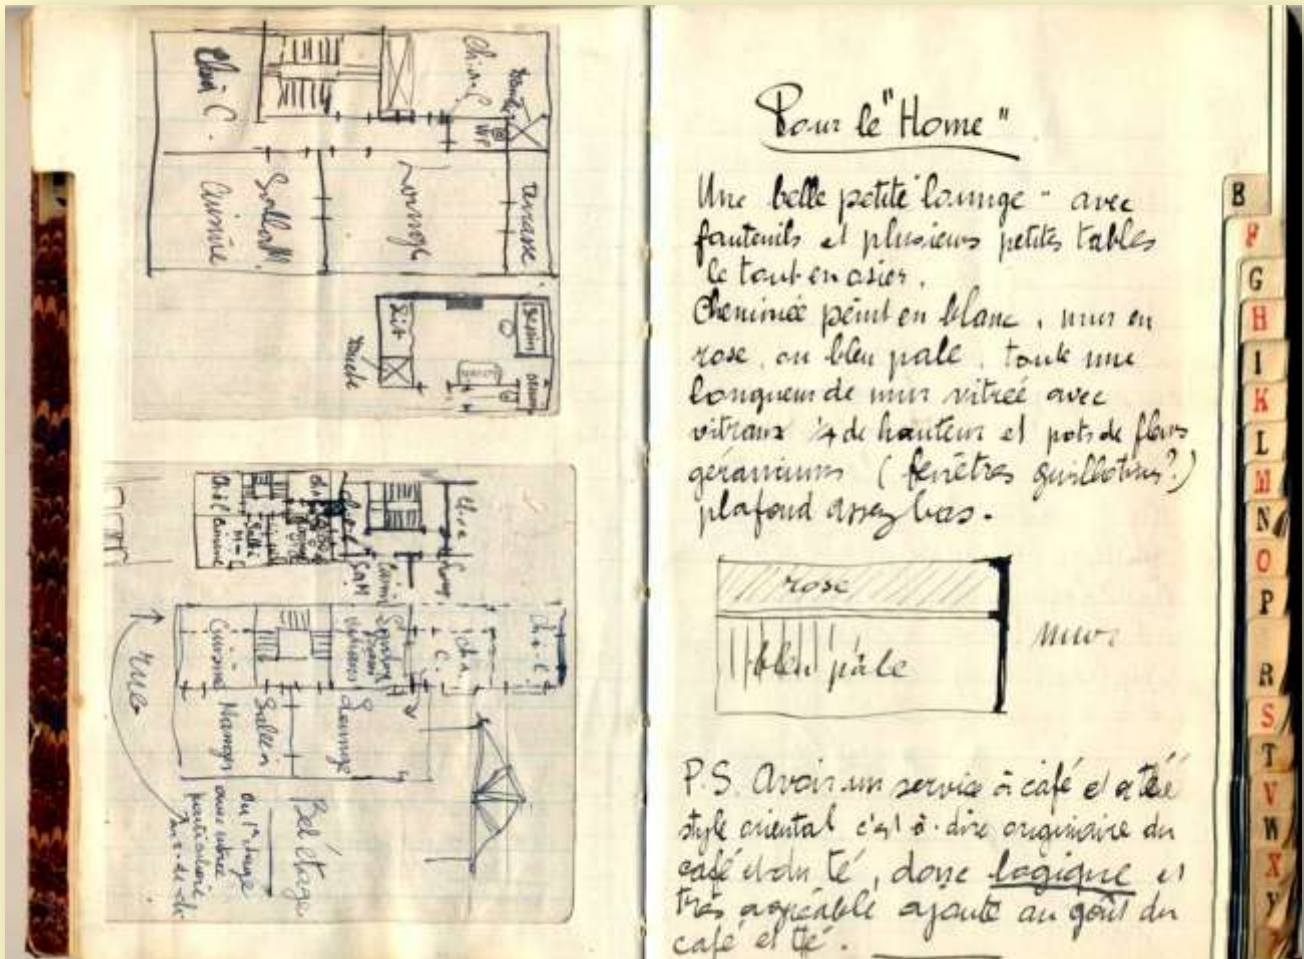 Cuisine
Salle M.
Lounge
terrasse
WP
Lit
Dessin
douche
Cuisine
Salle à
Manger
Lounge
rue
Bel étage
ou 1er étage
avec entrée
particulière
Pour le "Home"
Une belle petite "lounge" avec
fauteuils et plusieurs petites tables
le tout en osier.
Cheminée peint en blanc, murs en
rose, ou bleu pale, toute une
longueur de mur vitreé avec
vitraux 1/4 de hauteur et pots de fleurs
géraniums (fenêtres guillotines?)
plafond assez bas.
rose
bleu pâle
murs
P.S. Avoir un service à café et a teé
style oriental c'est à dire originaire du
café et du té, donc logique et
très agréable ajouté au goût du
café et té.
B
F
G
H
I
K
L
M
N
O
P
R
S
T
V
W
X
Y